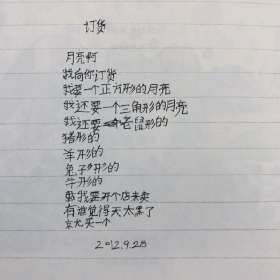 订货
月亮啊
我向你订货
我要一个正方形的月亮
我还要一个三角形的月亮
我还要老鼠形的
猪形的
羊形的
兔子形的
牛形的
我要开个店来卖
有谁觉得天太黑了
就买一个
2012.9.28